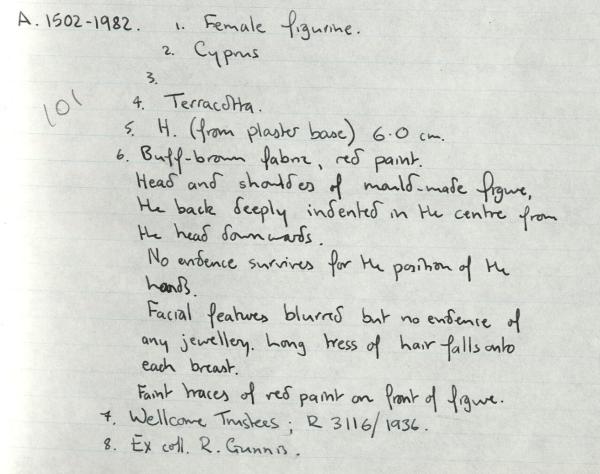 A. 1502-1982. 1. Female figurine.
2. Cyprus
3.
101
4. Terracotta.
5. H. (from plaster base) 6.0 cm.
6. Buff-brown fabric, red paint.
Head and shoulders of mould-made figure,
the back deeply indented in the centre from
the head downwards.
No evidence survives for the position of the
hands.
Facial features blurred but no evidence of
any jewellery. Long tress of hair falls onto
each breast.
Faint traces of red paint on front of figure.
7. Wellcome Trustees; R 3116/1936.
8. Ex coll. R. Gunnis.